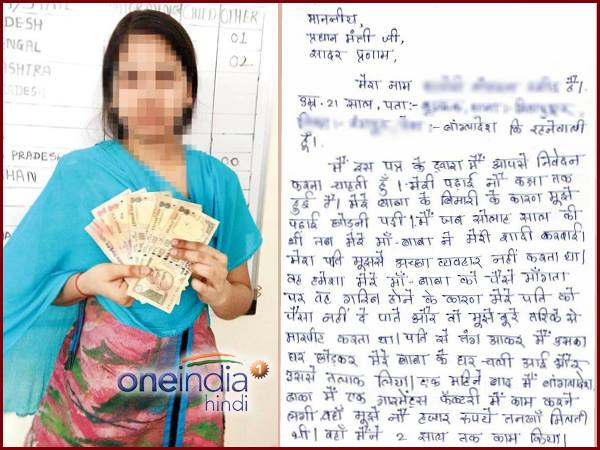 CHILD OTHER
ADESH
01
ENGAL
02
ASHTRA
PRADESH
oneindia
hindi
माननीय,
प्रधान मंत्री जी,
सादर प्रणाम,
मेरा नाम है।
उम्र - 21 साल, पता:-
:- बांग्लादेश कि रहनेवाली
हूँ।
मैं इस पत्र के द्वारा मैं आपसे निवेदन
करना चाहती हूँ। मेरी पढाई नौ कक्षा तक
हुई है। मेरे बाबा के बिमारी के कारण मुझे
पढाई छोडनी पडी। मैं जब सोलह साल की
थी तब मेरे माँ-बाबा ने मेरी शादी करवाई।
मेरा पति मुझसे अच्छा व्यवहार नहीं करता था।
वह हमेशा मेरे माँ-बाबा को पैसे माँगता
पर वह गरिब होने के कारण मेरे पति को
पैसा नहीं दे पाते और वो मुझे बूरे तरिके से
मारपीट करता था। पति से तंग आकर मैं उसका
घर छोडकर मेरे बाबा के घर चली आई और
उससे तलाक लिया। एक महिने बाद मैं बांगलादेश,
ढाका में एक गारमेंट्स फॅक्टरी में काम करने
लगी वहाँ मुझे नौ हजार रुपये तनखॉ मिलती
थी। वहाँ मैंने 2 साल तक काम किया।